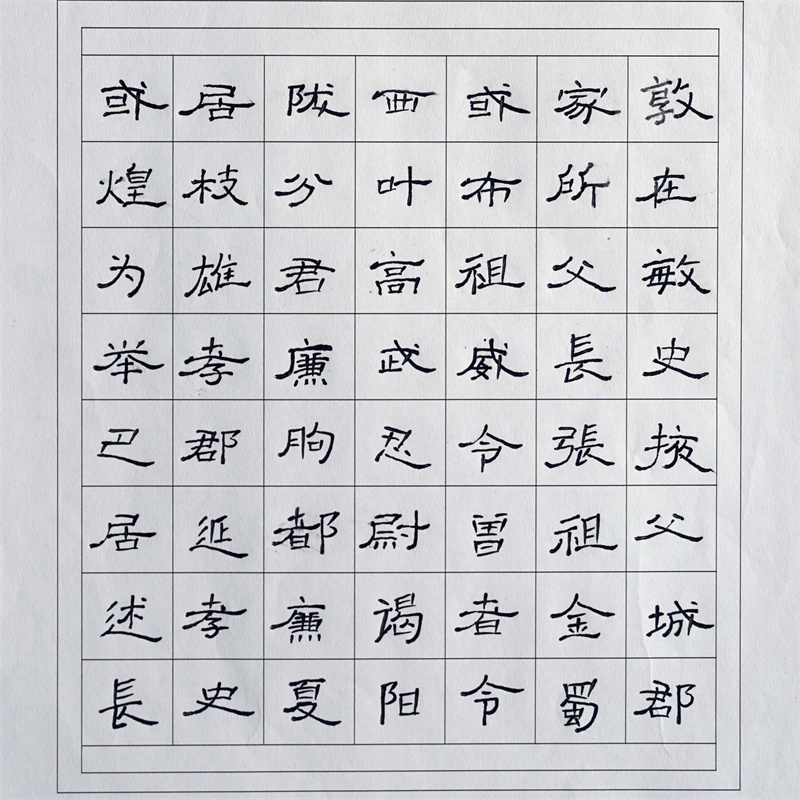 或居陇西或家敦
煌枝分叶布所在
为雄君高祖父敏
举孝廉武威長史
巴郡朐忍令張掖
居延都尉曾祖父
述孝廉谒者金城
長史夏阳令蜀郡